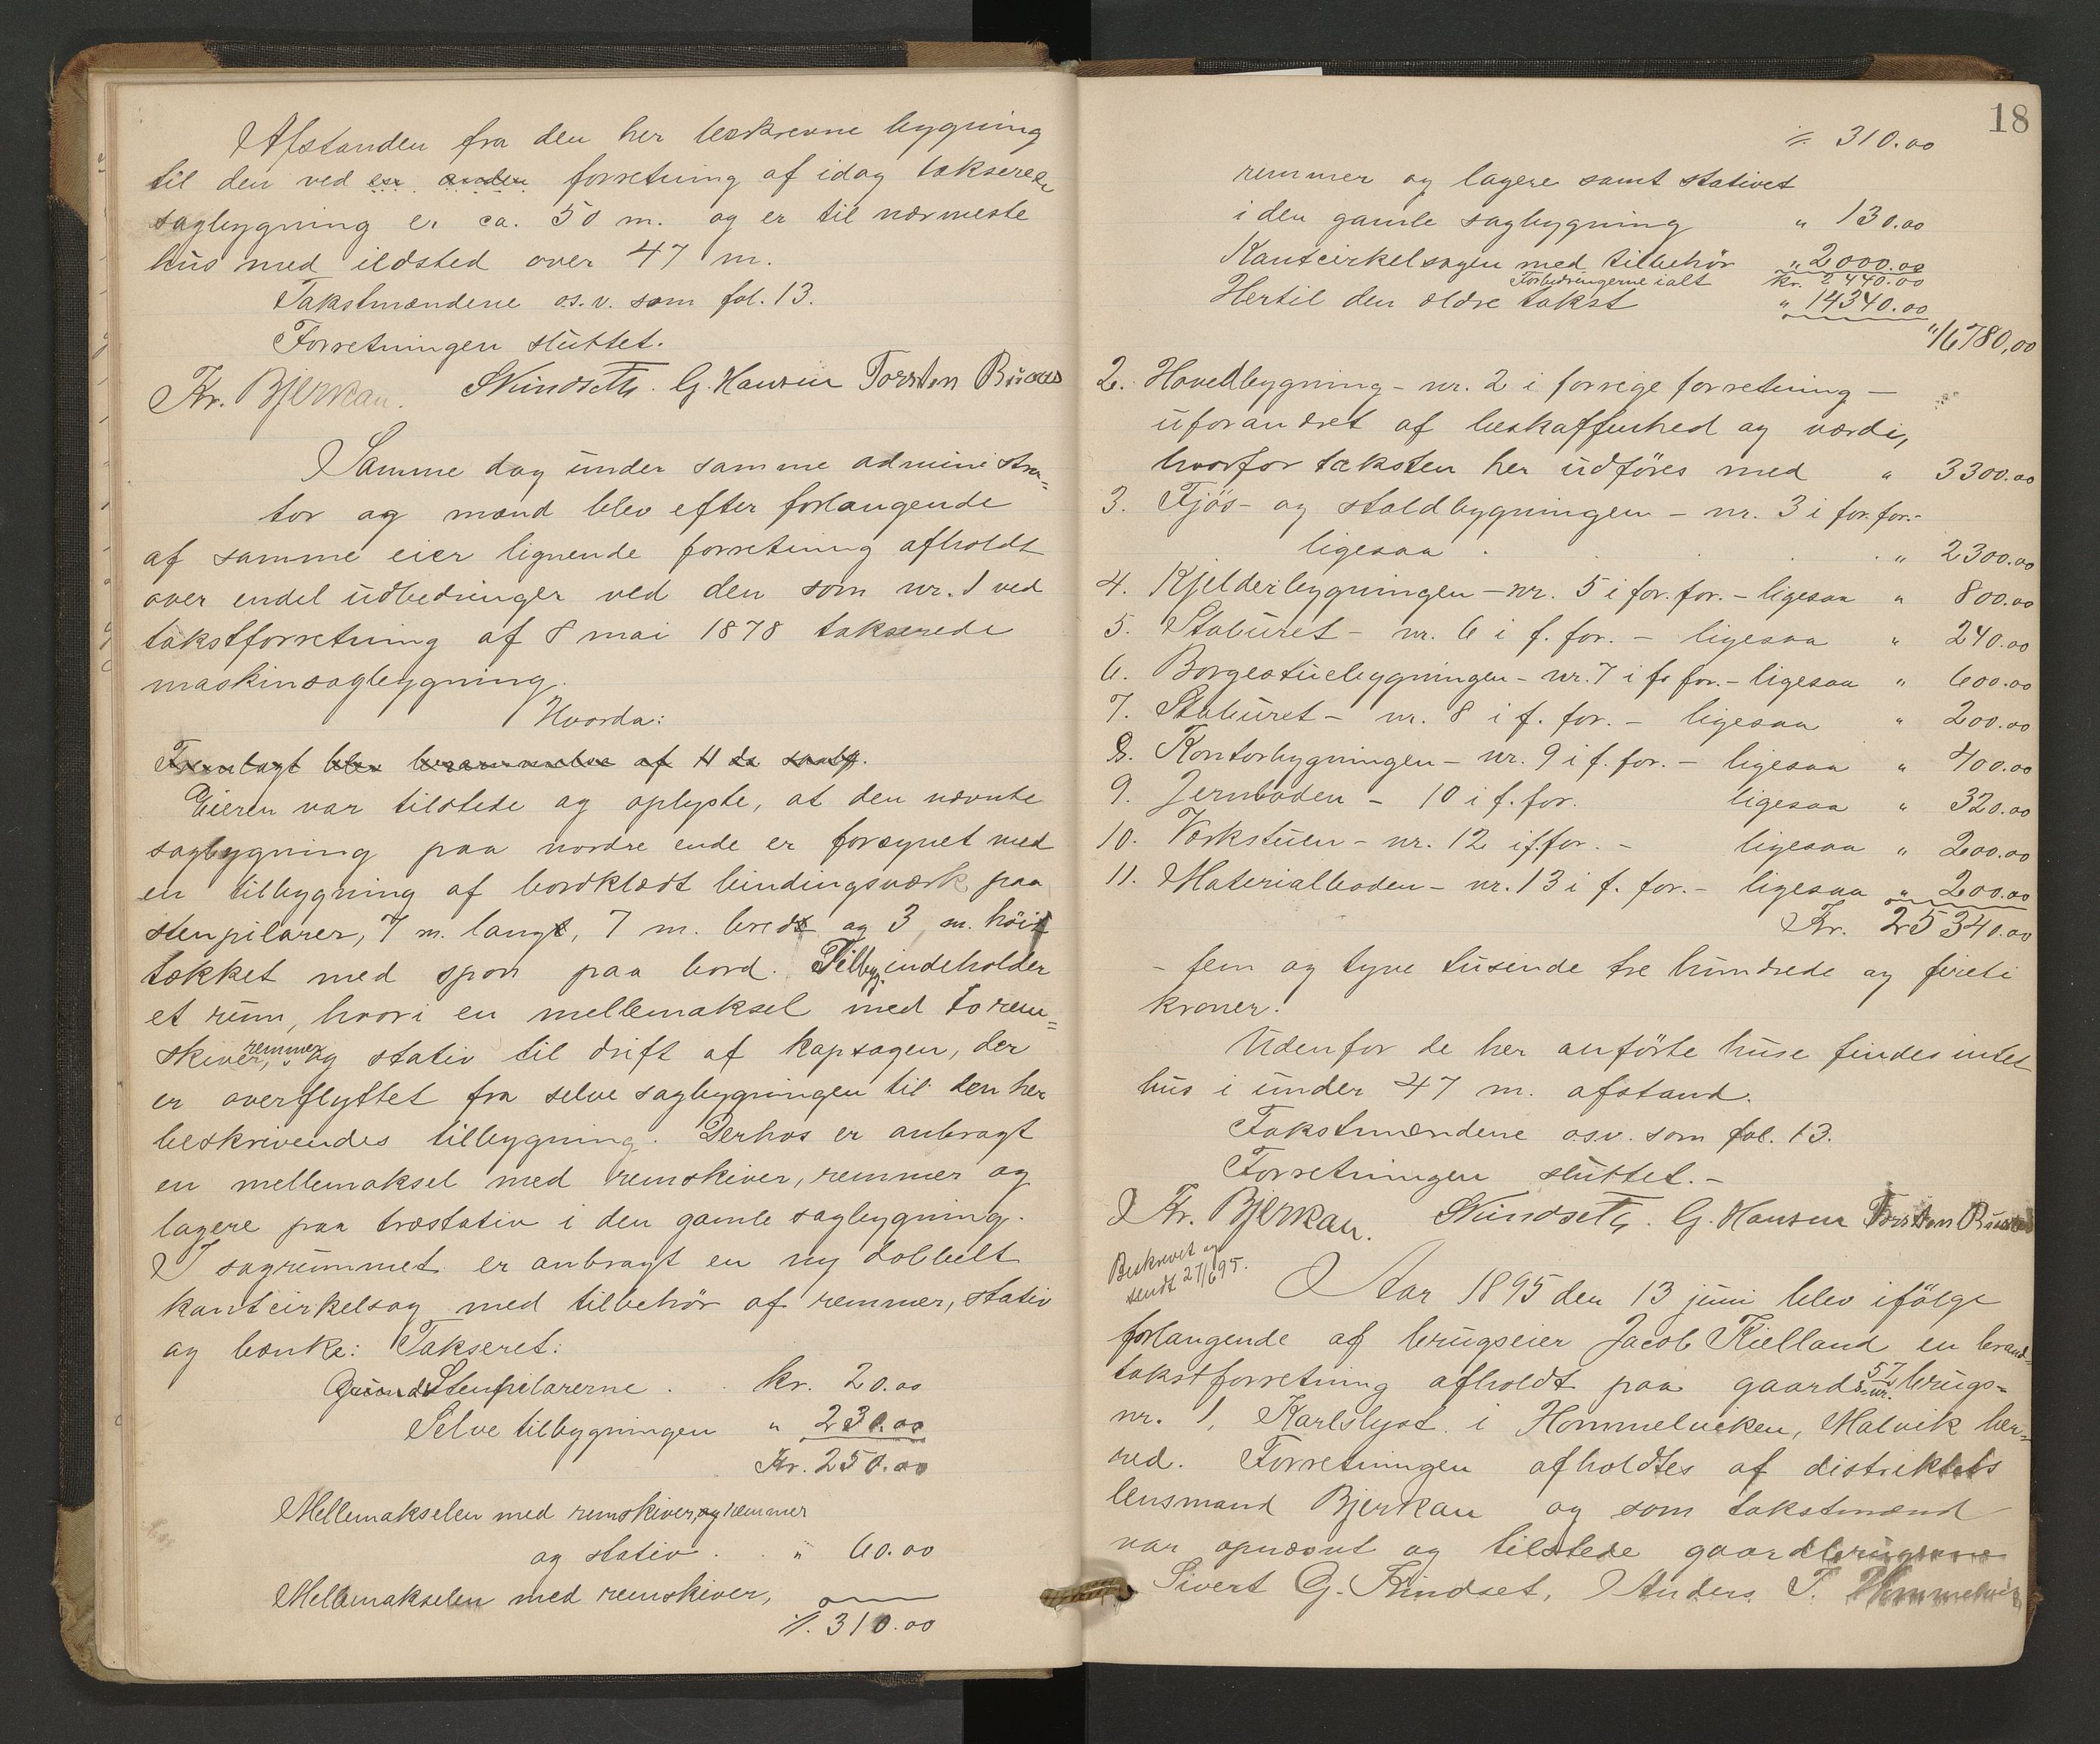 Afstanden fra den her beskrevne bygning
til den ved en anden forretning af idag takserede
sagbygning er ca. 50 m. og er til nærmeste
hus med ildsted over 47 m.
Takstmændene os.v. som fol. 13.
Forretningen sluttet.
Kr. Bjerkan. G. Hansen Torsten
Samme dag under samme administra-
tor og mænd blev efter forlangende
af samme eier lignende forretning afholdt
over endel udbedringer ved den som nr. 1 ved
takstforretning af 8 mai 1878 takserede
maskinsagbygning.
Hvorda:
Fremlagt blev berammelse af 4 ds
Eieren var tilstede og oplyste, at den nævnte
sagbygning paa nordre ende er forsynet med
en tilbygning af bordklædt bindingsværk paa
stenpilarer, 7 m. langt, 7 m. bredt og 3 m. høit
tækket med spon paa bord. Tilbyg. indeholder
et rum, hvori en mellemaksel med to rem=
skiver, remmer og stativ til drift af kapsagen, der
er overflyttet fra selve sagbygningen til den her
beskrivendes tilbygning. Derhos er anbragt
en mellemaksel med remskiver, remmer og
lagere paa træstativ i den gamle sagbygning.
I sagrummet er anbragt en ny dobbelt
kantcirkelsag med tilbehør af remmer, stativ
og bænke: Takseret:
Stenpilarerne . . kr. 20.00
Selve tilbygningen " 230.00
Kr. 250.00
Mellemakselen med remskiver, og remmer
og stativ . . " 60.00
Mellemakselen med remskiver,
%. 310.00
18
%. 310.00
remmer og lagere samt stativet
i den gamle sagbygning " 130.00
Kantcirkelsagen med tilbehør " 2000.00
Forbedringerne ialt kr. 2440.00
Hertil den ældre takst " 14340.00
" 16780,00
2. Hovedbygning - nr. 2 i forrige forretning -
uforandret af beskaffenhed og værdi,
hvorfor taksten her udføres med " 3300.00
3. Fjøs- og staldbygningen - nr. 3 i for. for.-
ligesaa . . . . " 2300.00
4. Kjelderbygningen - nr. 5 i for. for. - ligesaa " 800.00
5. Staburet - nr. 6 i f. for. - ligesaa " 240.00
6. Borgestuebygningen - nr. 7 i f. for. - ligesaa " 600.00
7. Staburet - nr. 8 i f. for. - ligesaa " 200.00
8. Kontorbygningen - nr. 9 i f. for. - ligesaa " 400.00
9. Jernboden - 10 i f. for. ligesaa " 320.00
10. Værkstuen - nr. 12 i f. for. - ligesaa " 200.00
11. Materialboden - nr. 13 i f. for. - ligesaa " 200.00
Kr. 25340.00
- fem og tyve tusende tre hundrede og fireti
kroner.
Udenfor de her anførte huse findes intet
hus i under 47 m. afstand.
Takstmændene osv. som fol. 13.
Forretningen sluttet. -
Kr. Bjerkan. G. Hansen Torsten
Beskrevet og
sendt 27/6 95.
Aar 1895 den 13 juni blev ifølge
forlangende af brugseier Jacob Kielland en brand-
takstforretning afholdt paa gaards-nr. 57 brugs-
nr. 1, Karlslyst i Hommelviken, Malvik her-
red. Forretningen afholdtes af distriktets
lensmand Bjerkan og som takstmænd
var opnævnt og tilstede gaardbrugerne
Sivert G. Anders T. Hommelvik,